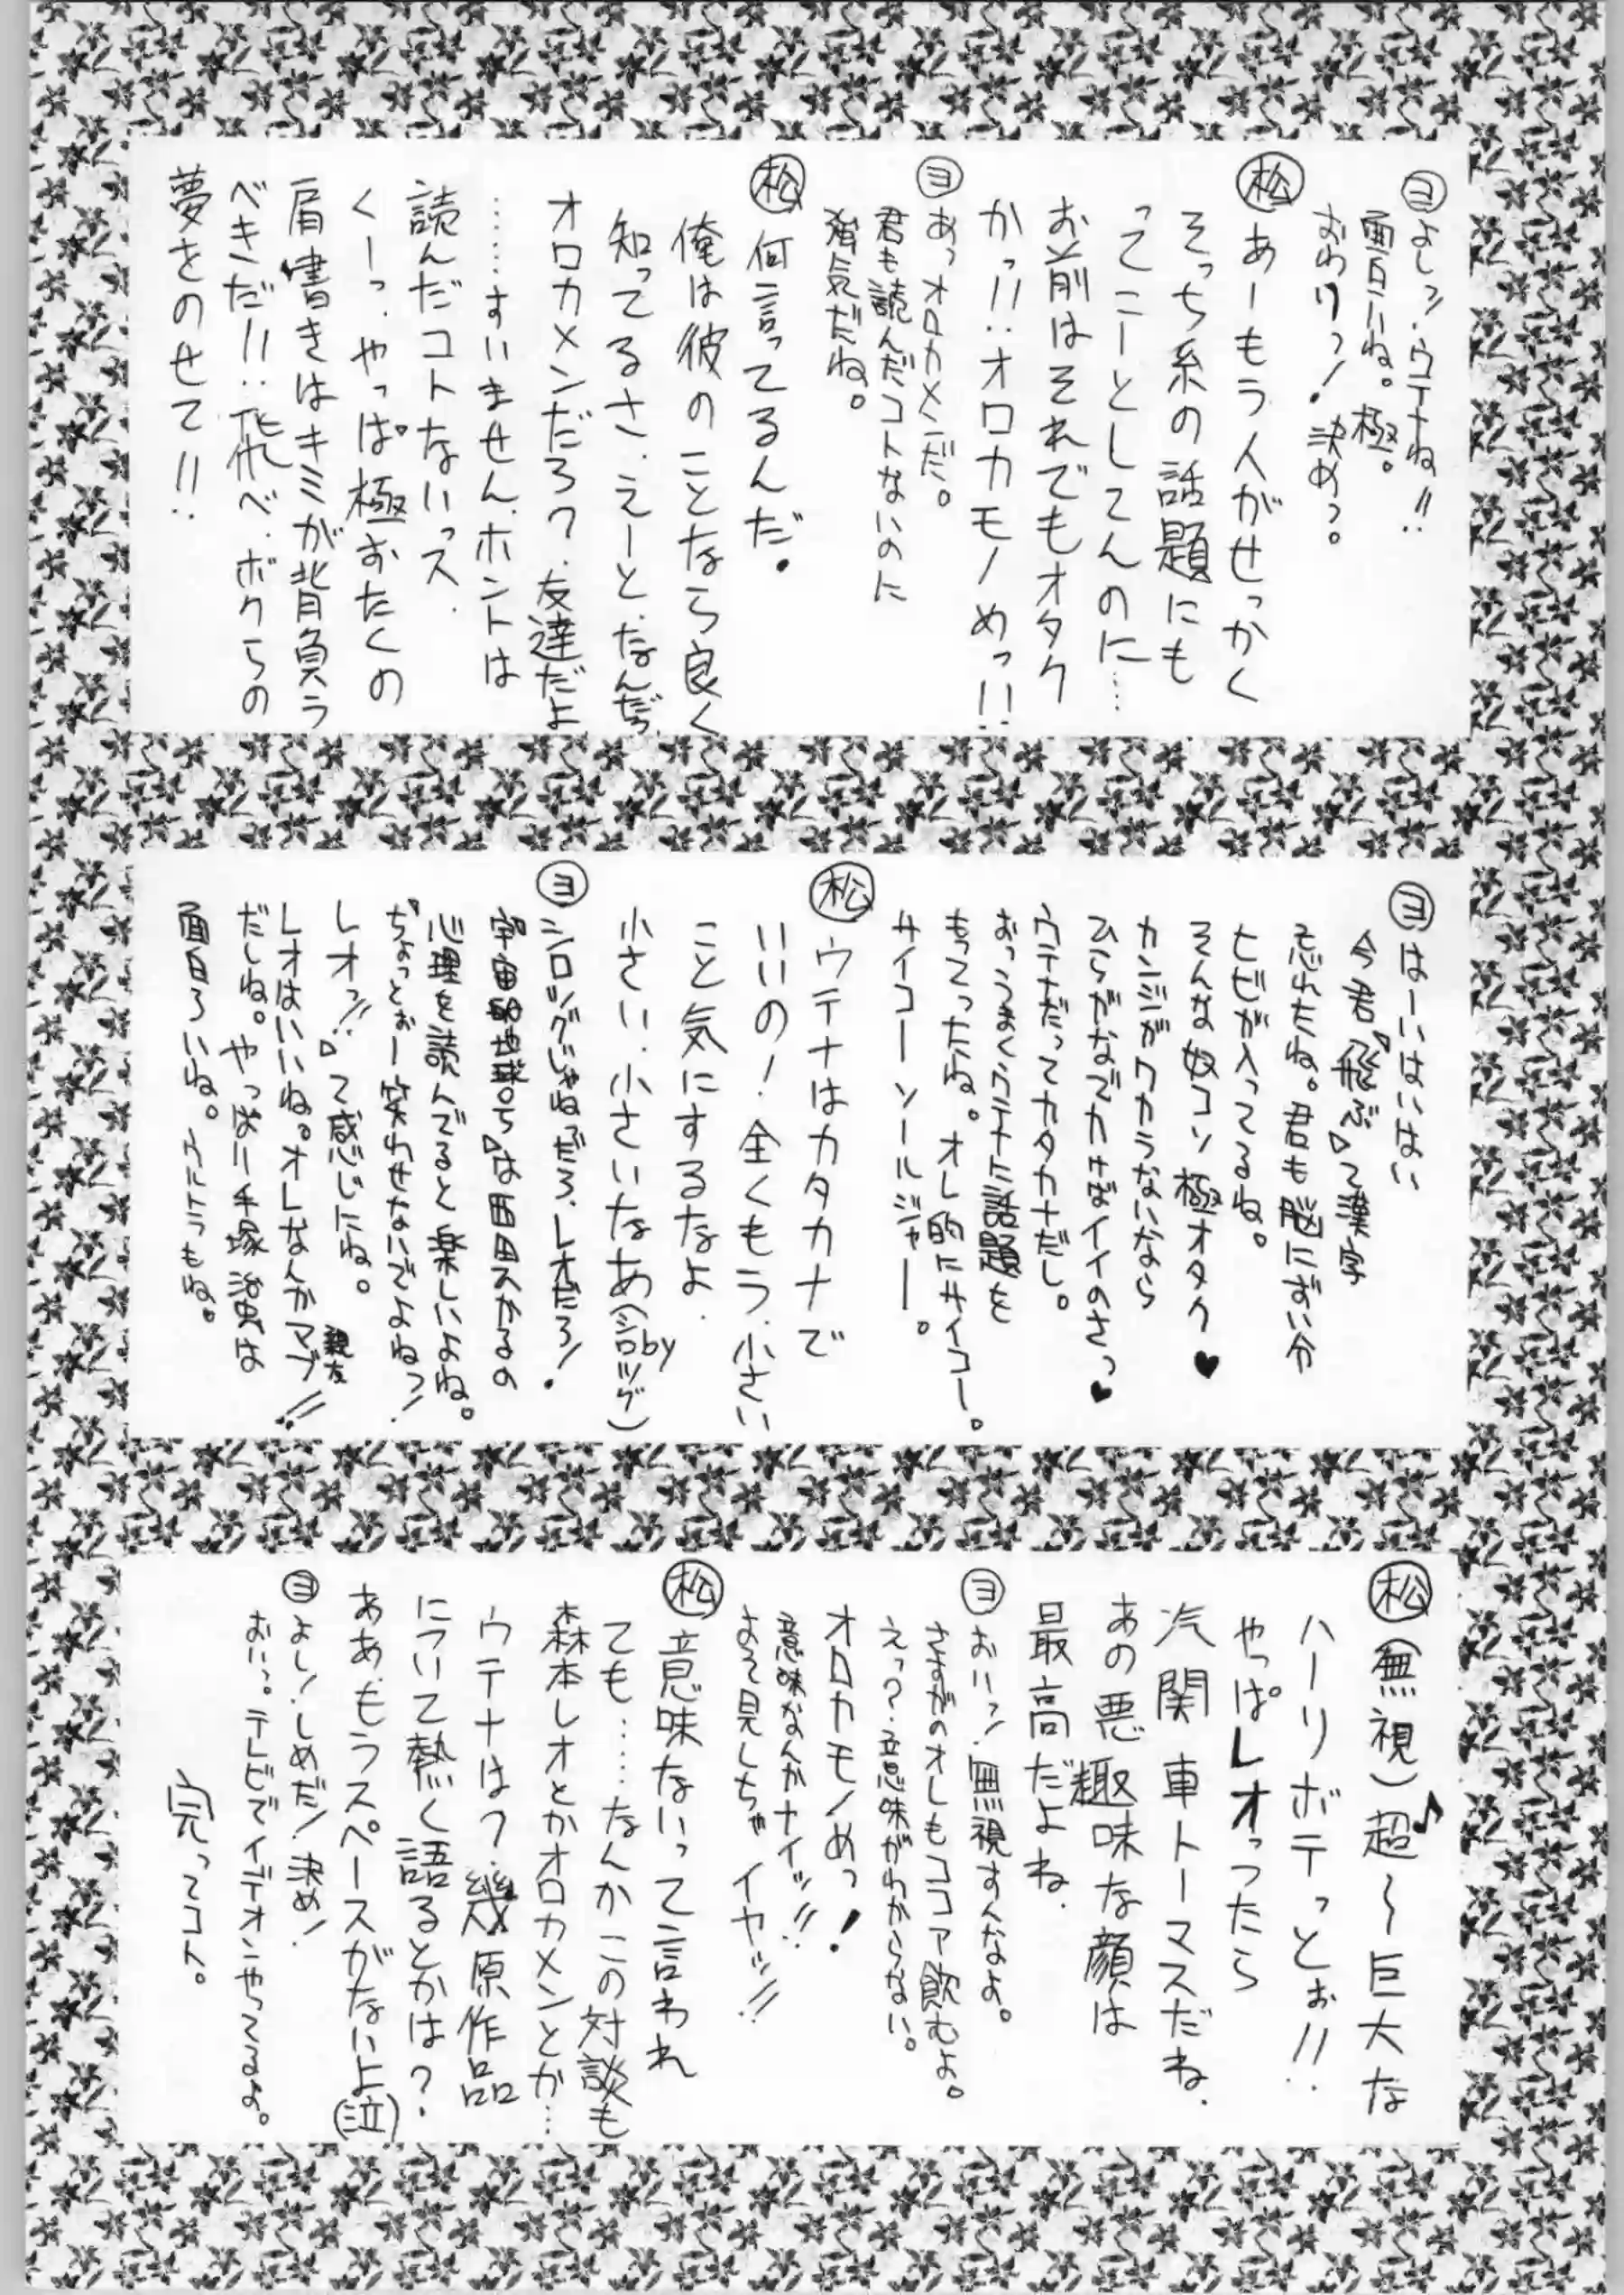 ヨ よしっ、ウテナね!!
面白いね。極。
おわりっ! 決めっ。
松 あーもう人がせっかく
そっち系の話題にも
ってこーとしてんのに…
お前はそれでもオタク
かっ!!オロカモノめっ!!
ヨ あっオロカメンだ。
君も読んだコトないのに
強気だね。
松 何言ってるんだ。
俺は彼のことなら良く
知ってるさ、えーと、なんだっ
オロカメンだろ?友達だよ
……すいません、ホントは
読んだコトないっス
くーっ、やっぱ極おたくの
肩書きはキミが背負う
べきだ!!飛べ、ボクらの
夢をのせて!!
ヨ はーいはいはい
今君『飛ぶ』て漢字
忘れたね。君も脳にずい分
ヒビが入ってるね。
そんな奴コソ極オタク♥
カンジがワカラないなら
ひらがなでカけばイイのさっ♥
ウテナだってカタカナだし。
おっうまくウテナに話題を
もってったね。オレ的にサイコー。
サイコーソールジャー。
松 ウテナはカタカナで
いいの!全くもう、小さい
こと気にするなよ
小さい、小さいなあ(by
シロッグ)
ヨ シロッグじゃねーだろ、レオだろ!
『宇宙的地球っち』は西田スカるの
心理を読んでると楽しいよね。
『ちょっとぉー笑わせないでよねっ!
レオっ!!』て感じにね。
レオはいいね。オレなんかマブ!!
親友
だしね。やっぱり手塚治虫は
面白ろいね。ウルトラもね。
松 (無視)超〜巨大な♪
ハーリボテっとぉ!!
やっぱレオっつたら
汽関車トーマスだね
あの悪趣味な顔は
最高だよね
ヨ おいっ!無視すんなよ。
さすがのオレもココア飲むよ。
えっ?意味がわからない。
オロカモノめっ!
意味なんかナイッ!!
よそ見しちゃイヤッ!!
松 意味ないって言われ
ても……なんかこの対談も
森本レオとかオロカメンとか…
ウテナは?幾原作品
について熱く語るとかは?
ああ、もうスペースがないよ(泣)
ヨ よし!しめだ!決め!
おいっ。テレビでイデオンやってるよ。
完ってコト。